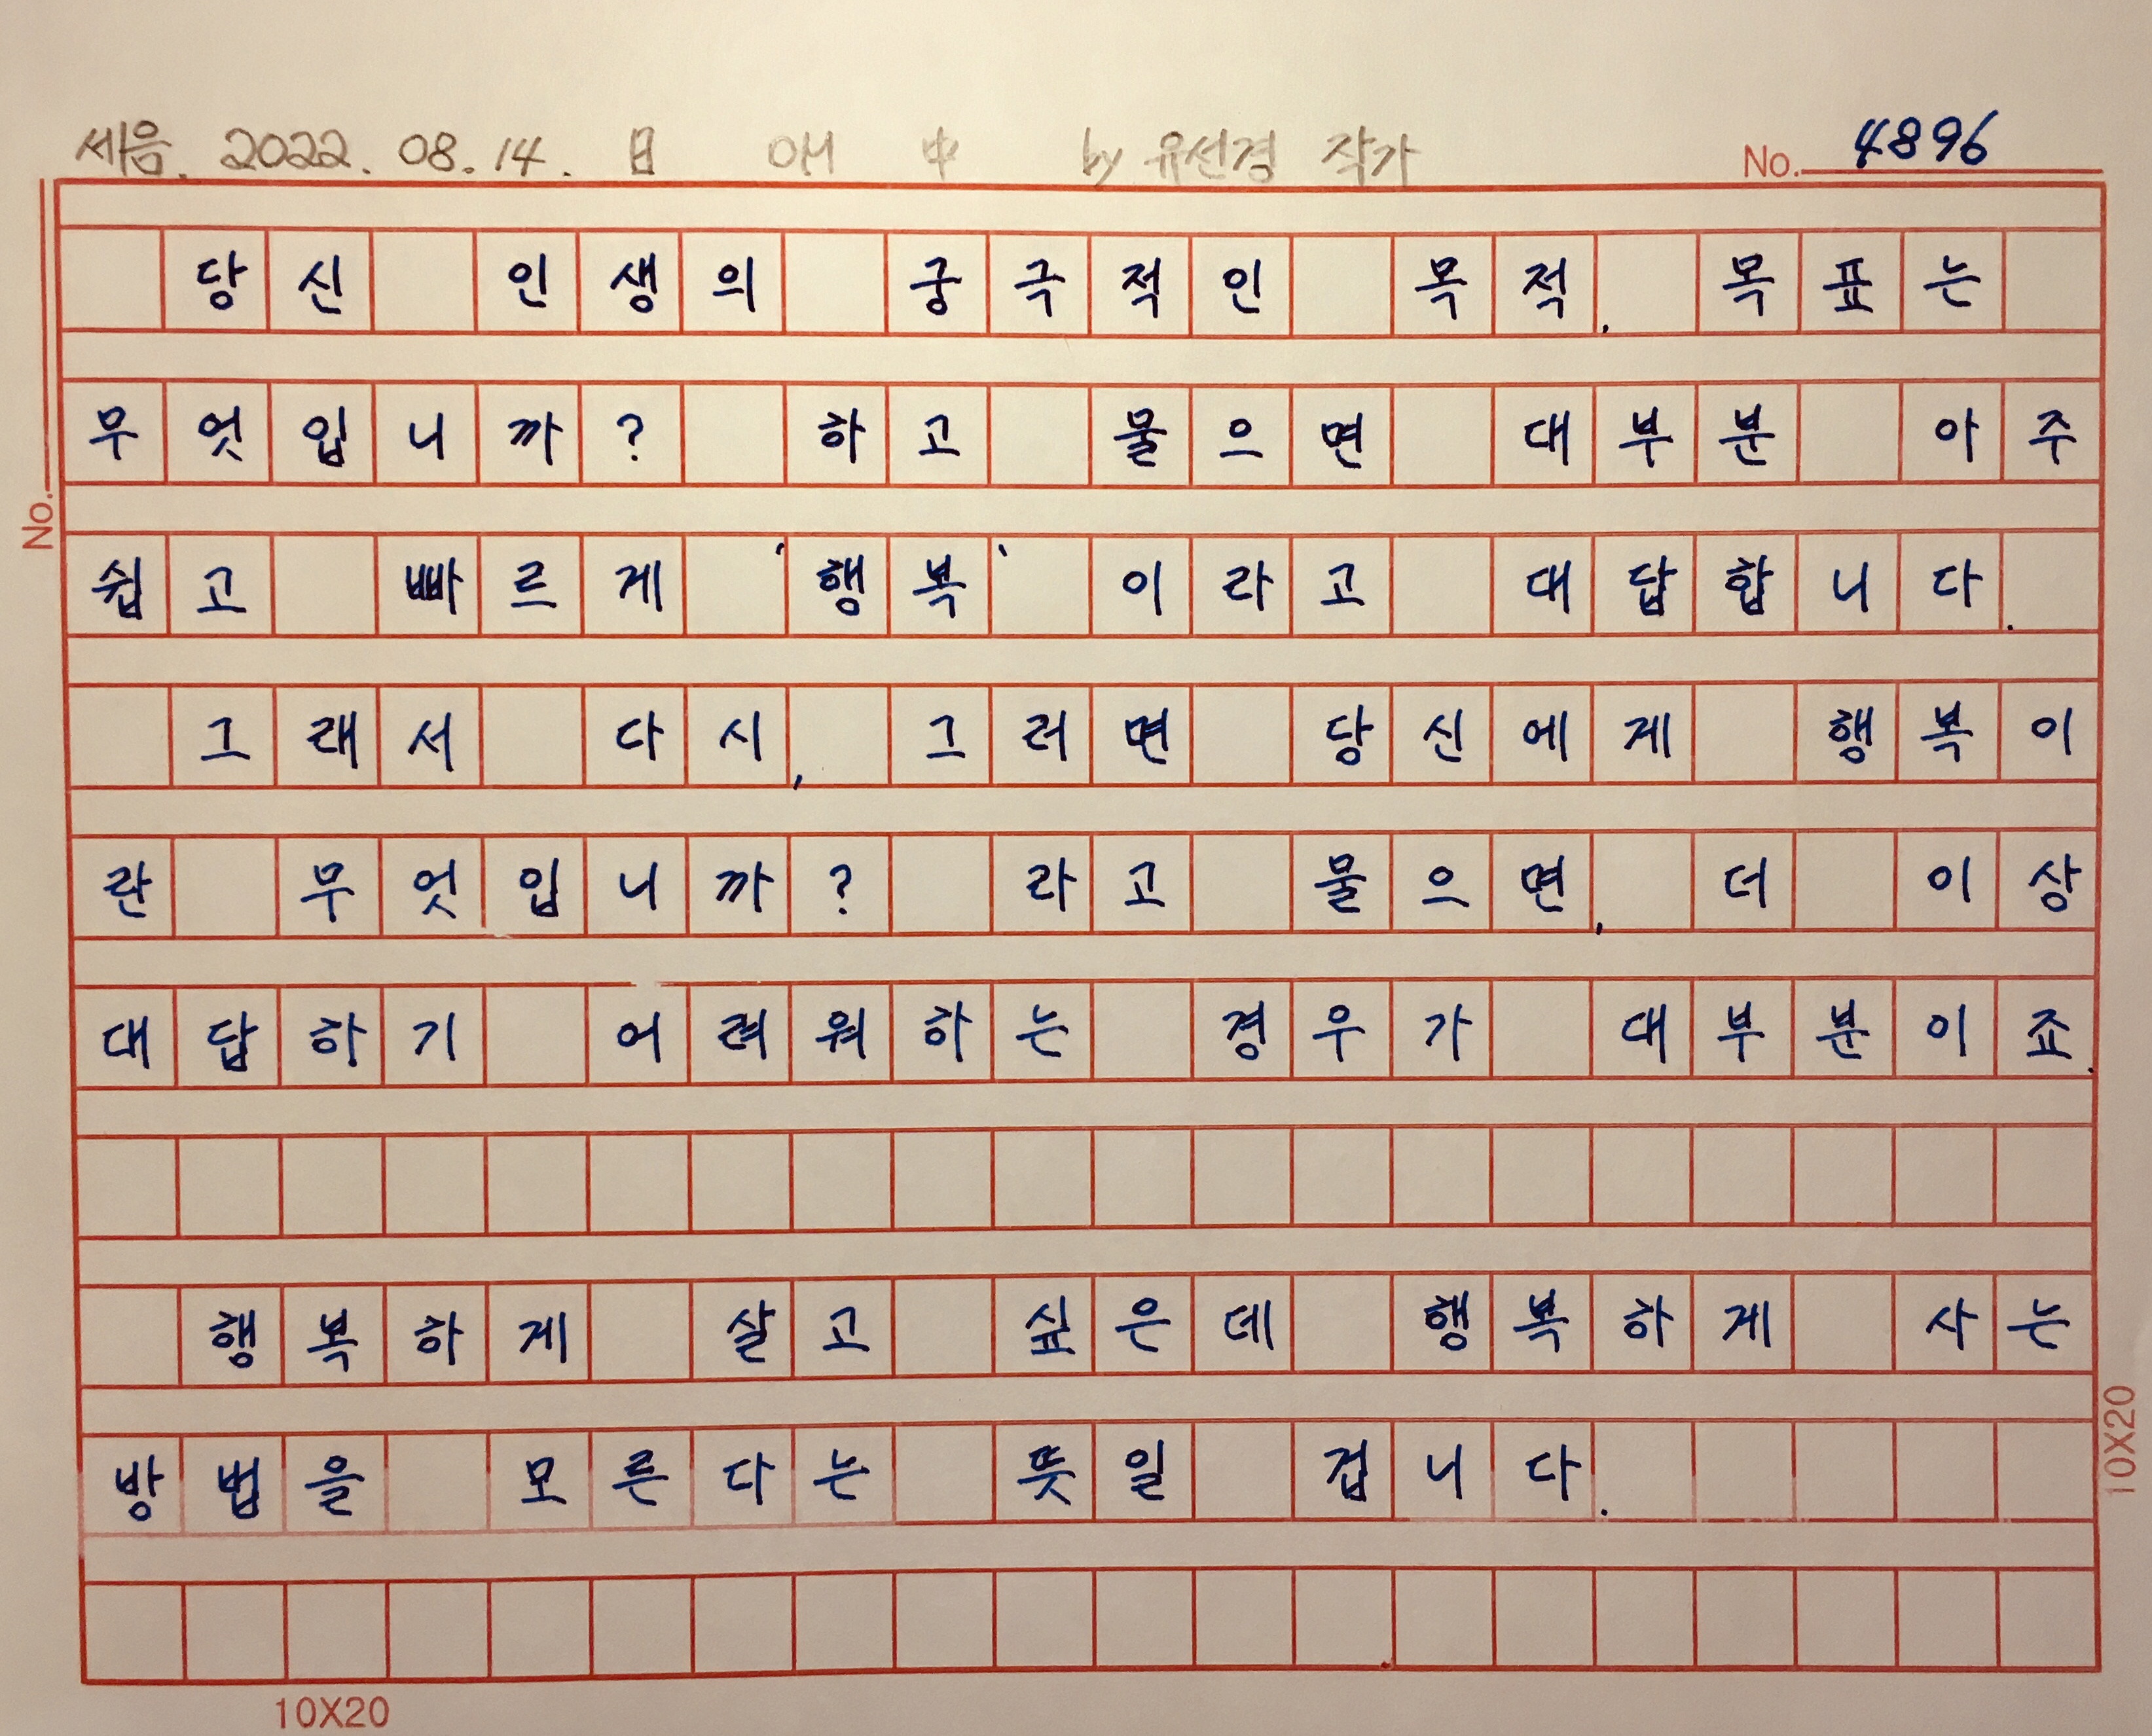 세음. 2022. 08. 14. 日 애 中 by 유선경 작가
No. 4896
당신 인생의 궁극적인 목적. 목표는
무엇입니까? 하고 물으면 대부분 아주
쉽고 빠르게 '행복' 이라고 대답합니다.
그래서 다시, 그러면 당신에게 행복이
란 무엇입니까? 라고 물으면, 더 이상
대답하기 어려워하는 경우가 대부분이죠.
행복하게 살고 싶은데 행복하게 사는
방법을 모른다는 뜻일 겁니다.
No.
10X20
10X20